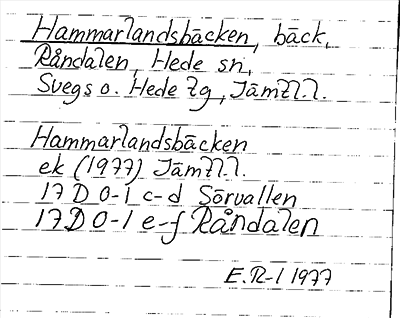 Hammarlandsbäcken, bäck,
Råndalen, Hede sn,
Svegs o. Hede tg, Jämtl.l.
Hammarlandsbäcken
ek (1977) Jämtl.l.
17D 0-1 c-d Sörvallen
17D 0-1 e-f Råndalen
E.R-l 1977